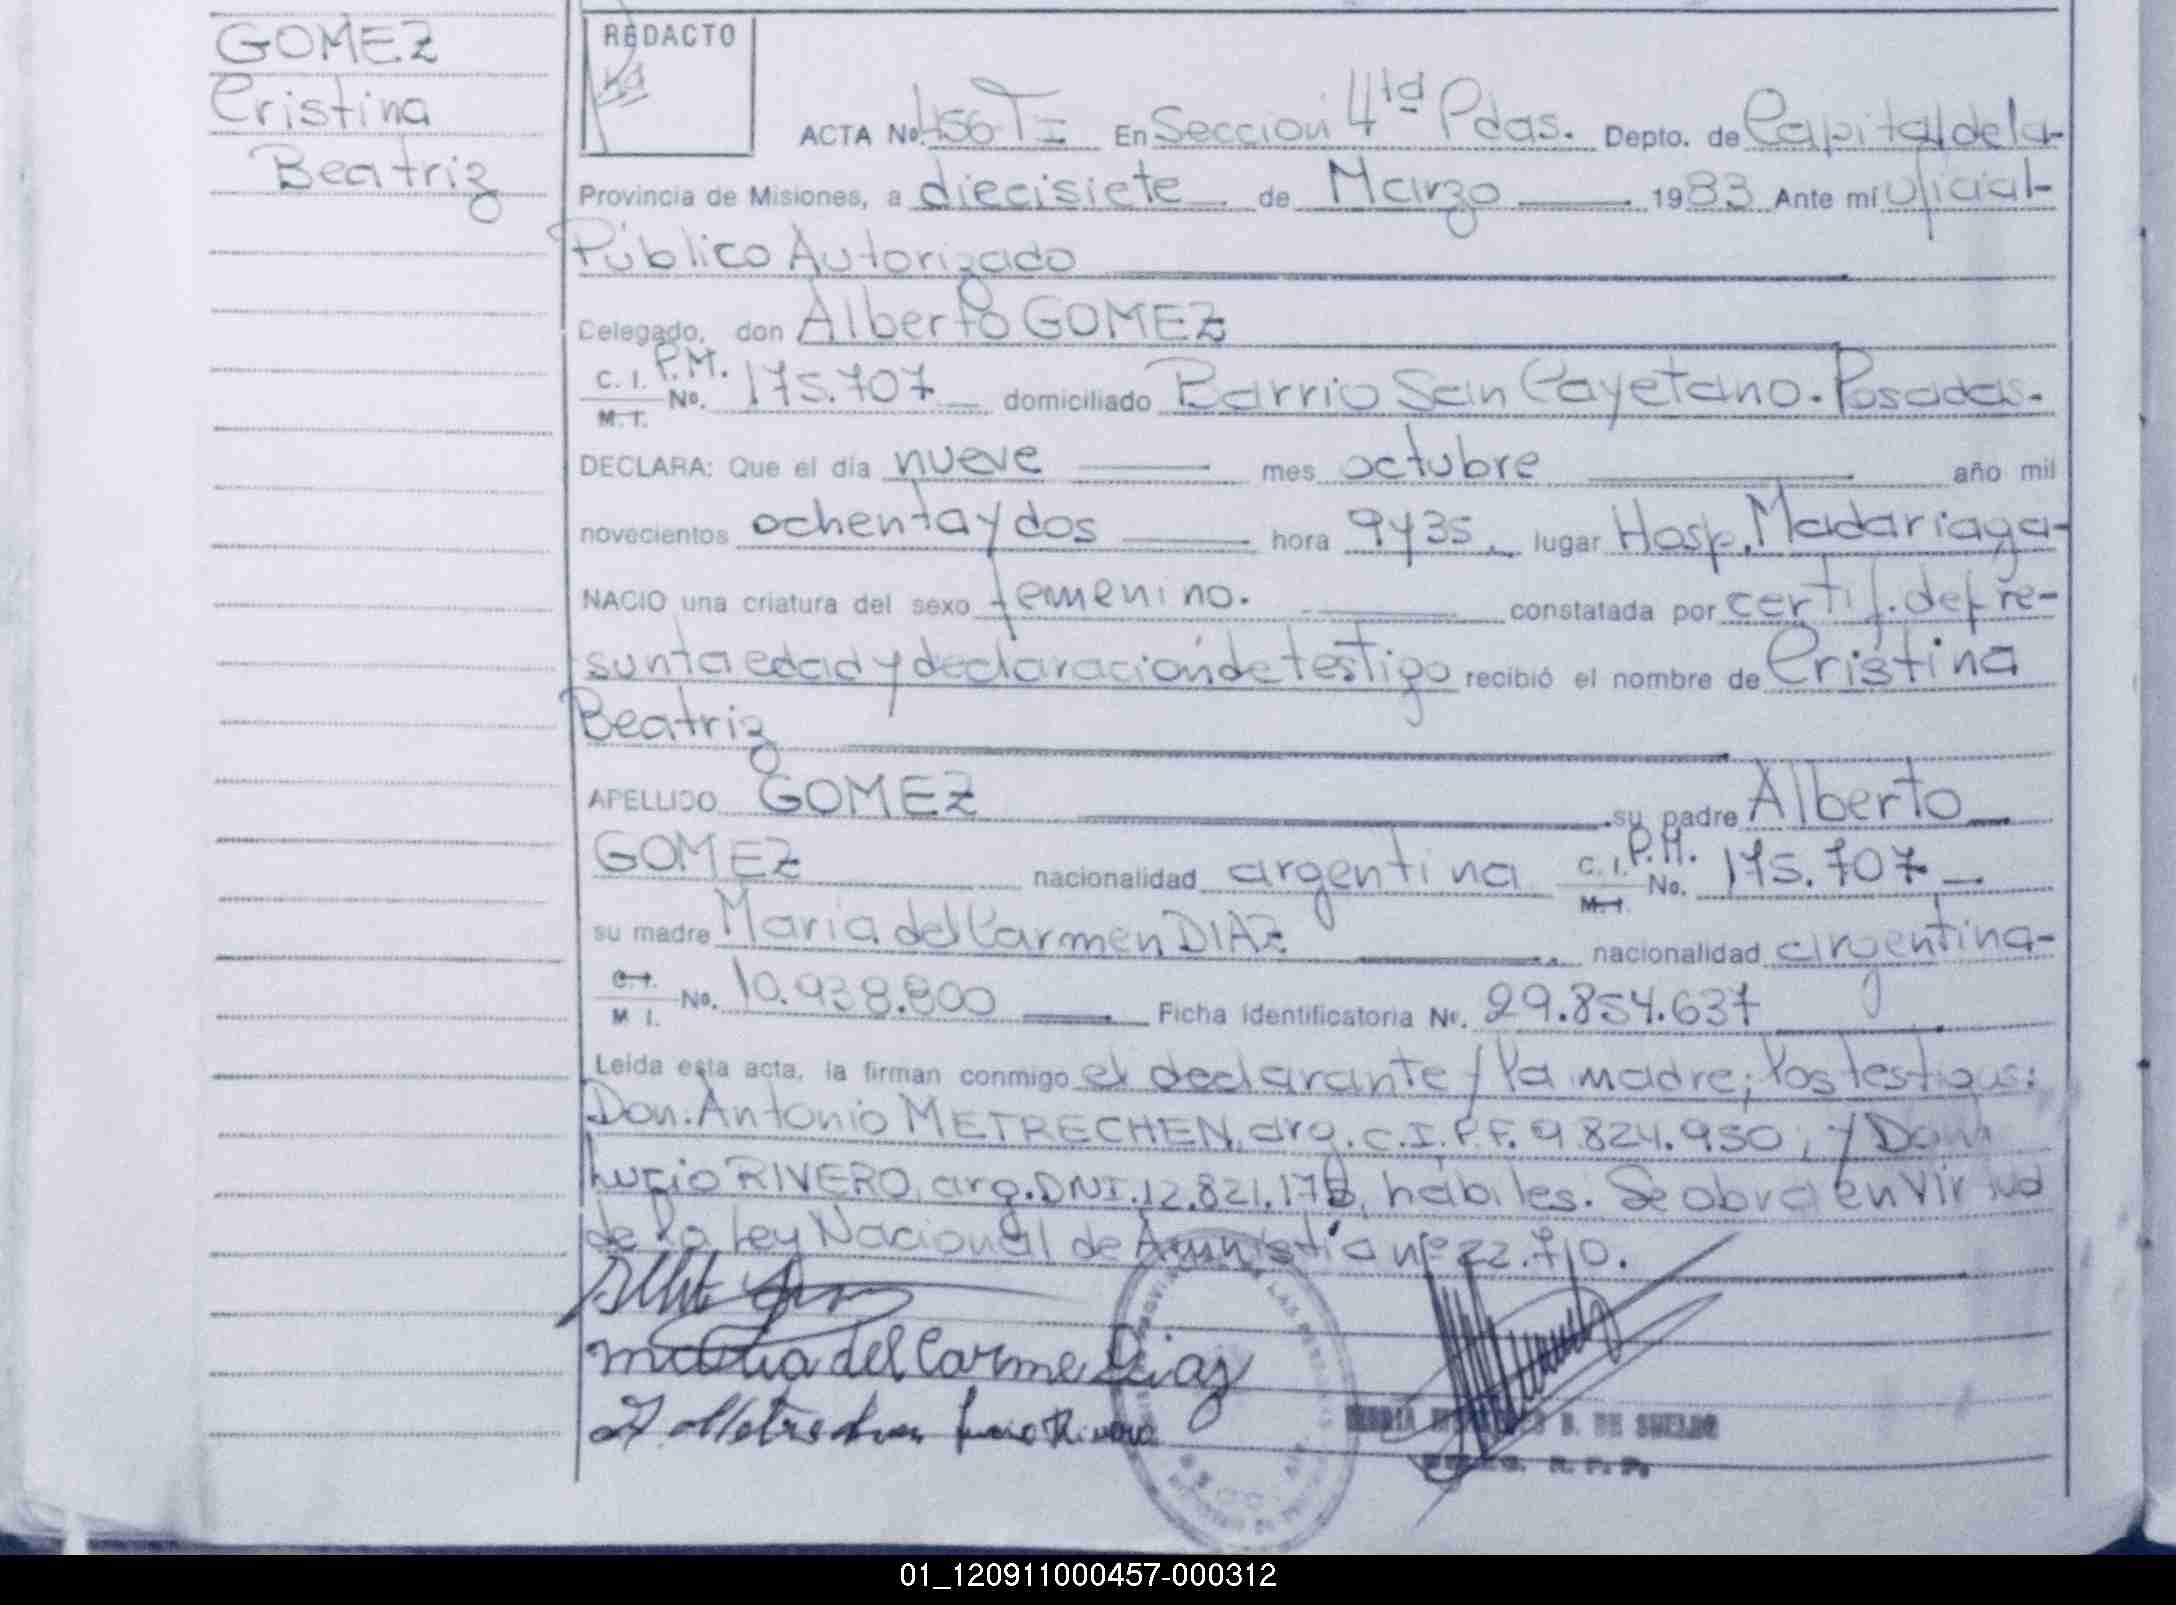 GOMEZ
Cristina
Beatriz
REDACTO
ACTA No. 456 T I En Sección 4ta Pdas. Depto. de Capital de la-
Provincia de Misiones, a diecisiete de Marzo 1983 Ante mí Oficial-
Público Autorizado
Delegado, don Alberto GOMEZ
C. I. P.M. M. T. No. 175.707 domiciliado Barrio San Cayetano. Posadas.
DECLARA: Que el día nueve mes octubre año mil
novecientos ochenta y dos hora 9 y 35 lugar Hosp. Madariaga-
NACIO una criatura del sexo femenino. constatada por certif. de pre-
sunta edad y declaración de testigo recibió el nombre de Cristina
Beatriz
APELLIDO GOMEZ su padre Alberto
GOMEZ nacionalidad argentina C. I. P.M. M. I. No. 175.707
su madre Maria del Carmen DIAZ nacionalidad argentina-
C. I. M. I. No. 10.938.800 Ficha identificatoria Nº. 29.854.637
Leida esta acta, la firman conmigo el declarante y la madre; los testigos:
Don: Antonio METRECHEN, arg. C.I.P.F. 9.824.950; y Don
Lucio RIVERO, arg. DNI. 12.821.178, hábiles. Se obra en virtud
de la Ley Nacional de Amnistía nº 22.710.
maria del Carmen Diaz
A. Metrechen Lucio Rivero
B. DE SUELDO
R. P. P.
01_120911000457-000312